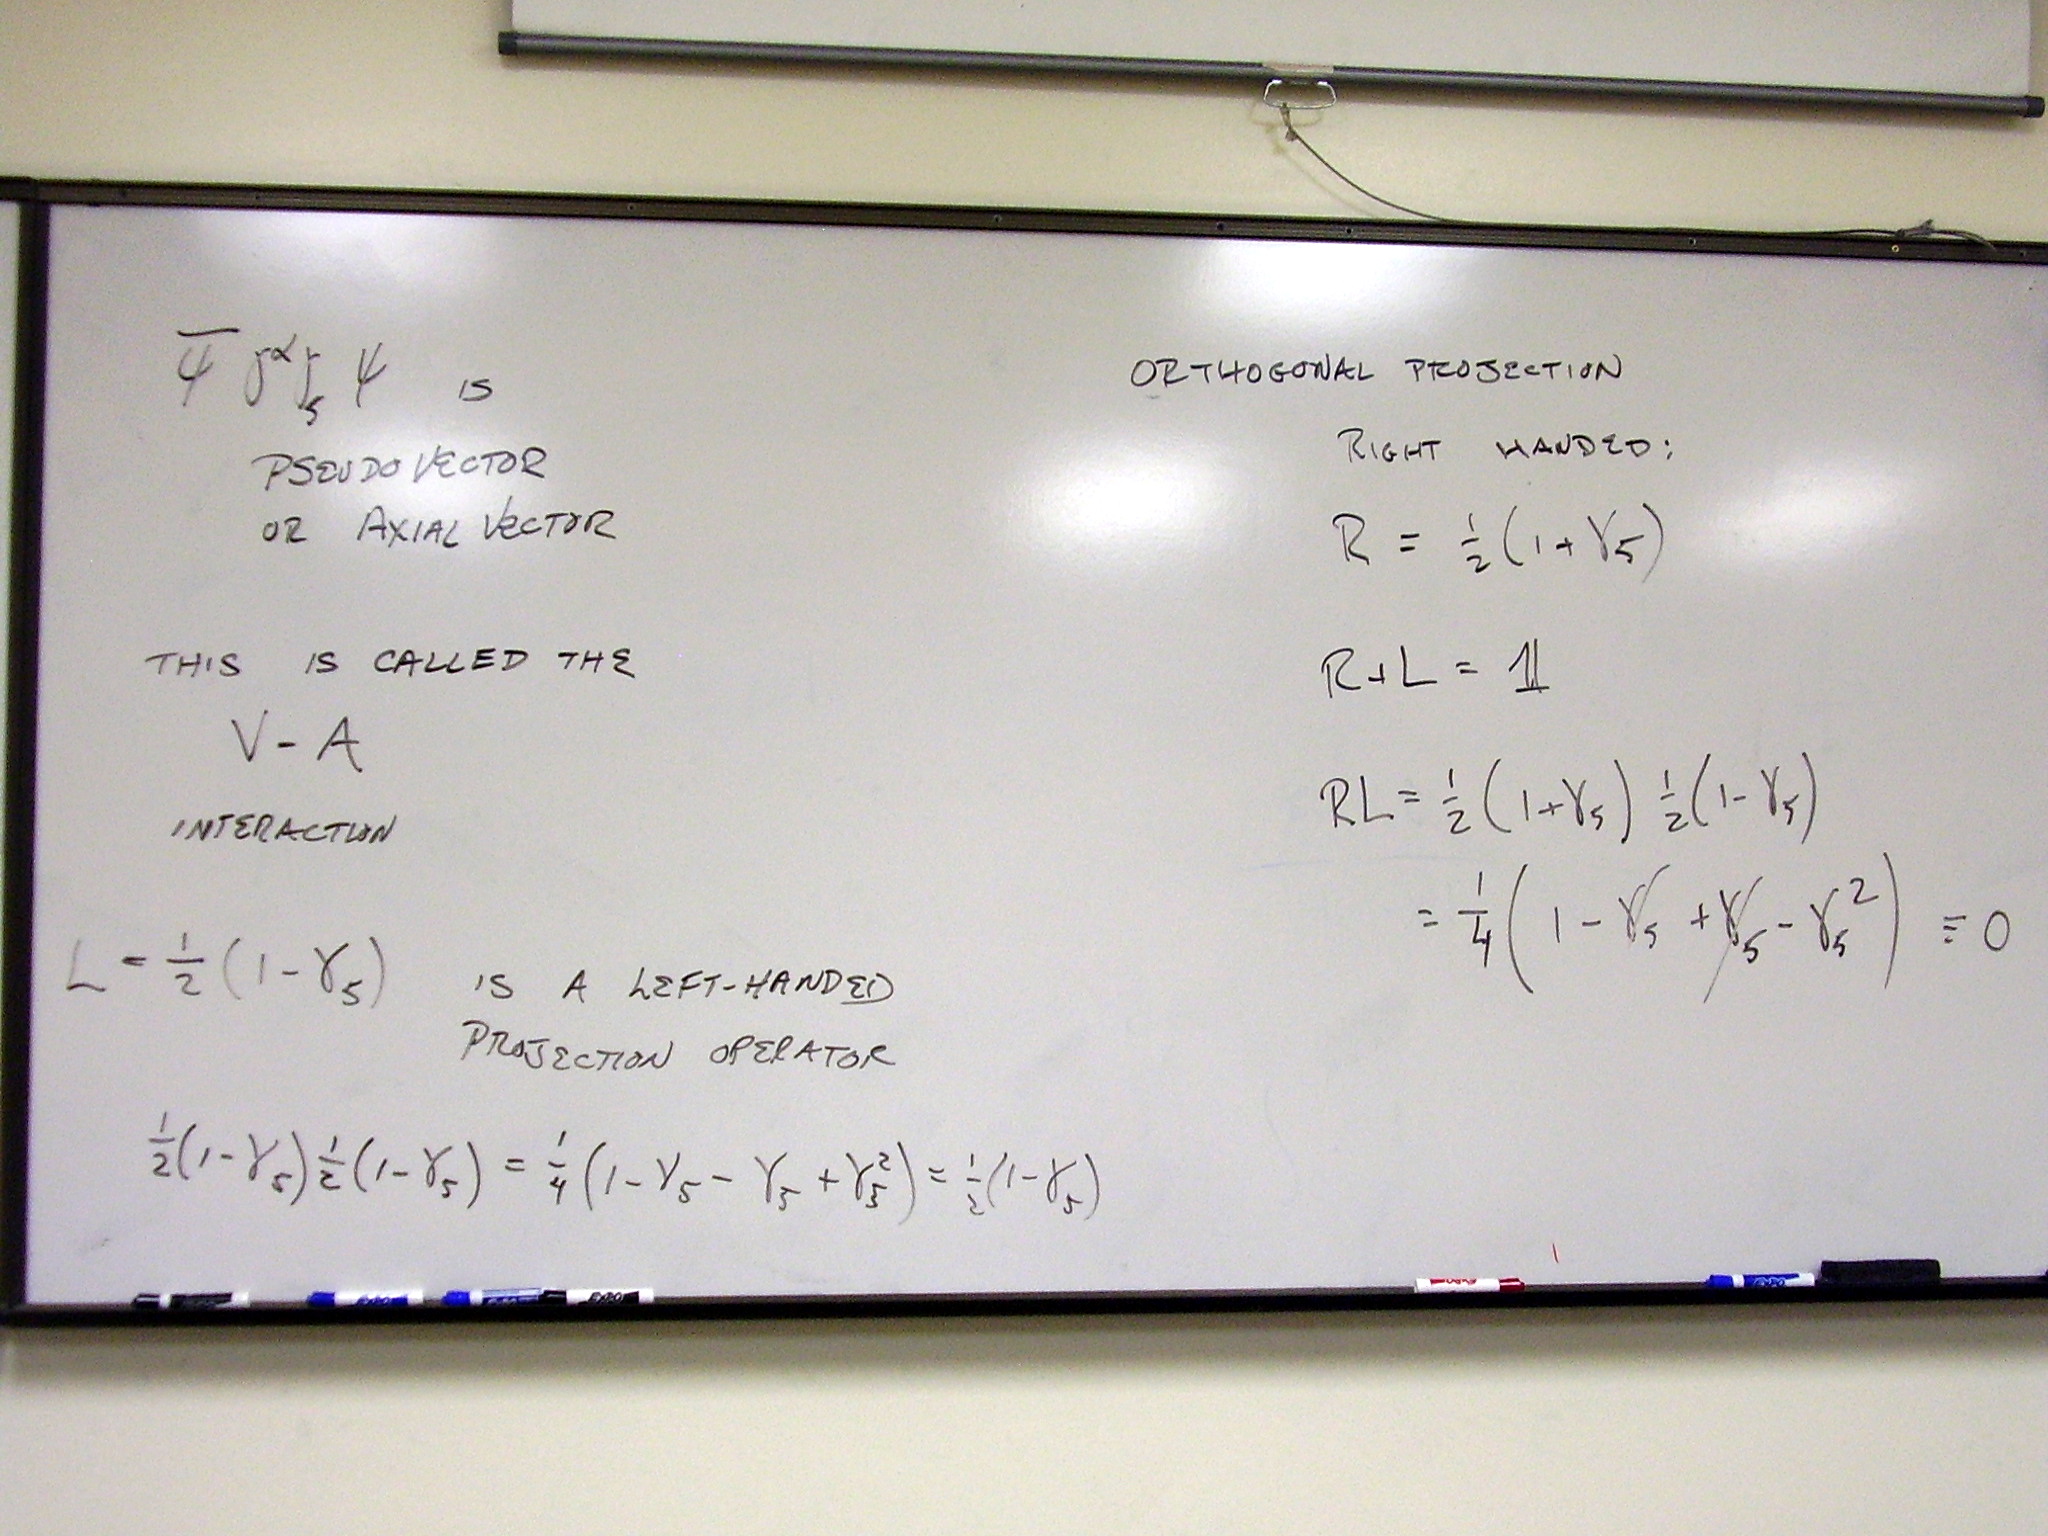 ψ̄ γ^α γ_5 ψ IS
PSEUDOVECTOR
OR AXIAL VECTOR
THIS IS CALLED THE
V - A
INTERACTION
L = 1/2 (1 - γ_5) IS A LEFT-HANDED
PROJECTION OPERATOR
1/2 (1 - γ_5) 1/2 (1 - γ_5) = 1/4 (1 - γ_5 - γ_5 + γ_5^2) = 1/2 (1 - γ_5)
ORTHOGONAL PROJECTION
RIGHT HANDED:
R = 1/2 (1 + γ_5)
R + L = 𝟙
RL = 1/2 (1 + γ_5) 1/2 (1 - γ_5)
= 1/4 (1 - γ_5 + γ_5 - γ_5^2) ≡ 0
EXPO
EXPO
EXPO